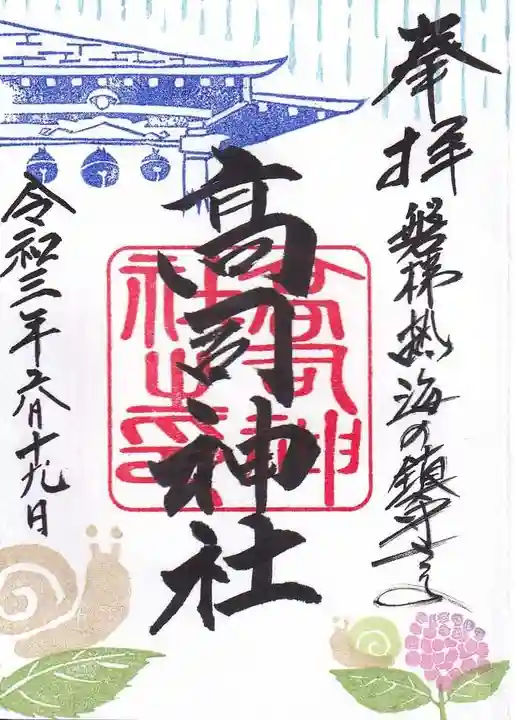 奉拝
磐梯熱海の鎮守さま
高司神社
高司神社之印
令和三年六月十九日